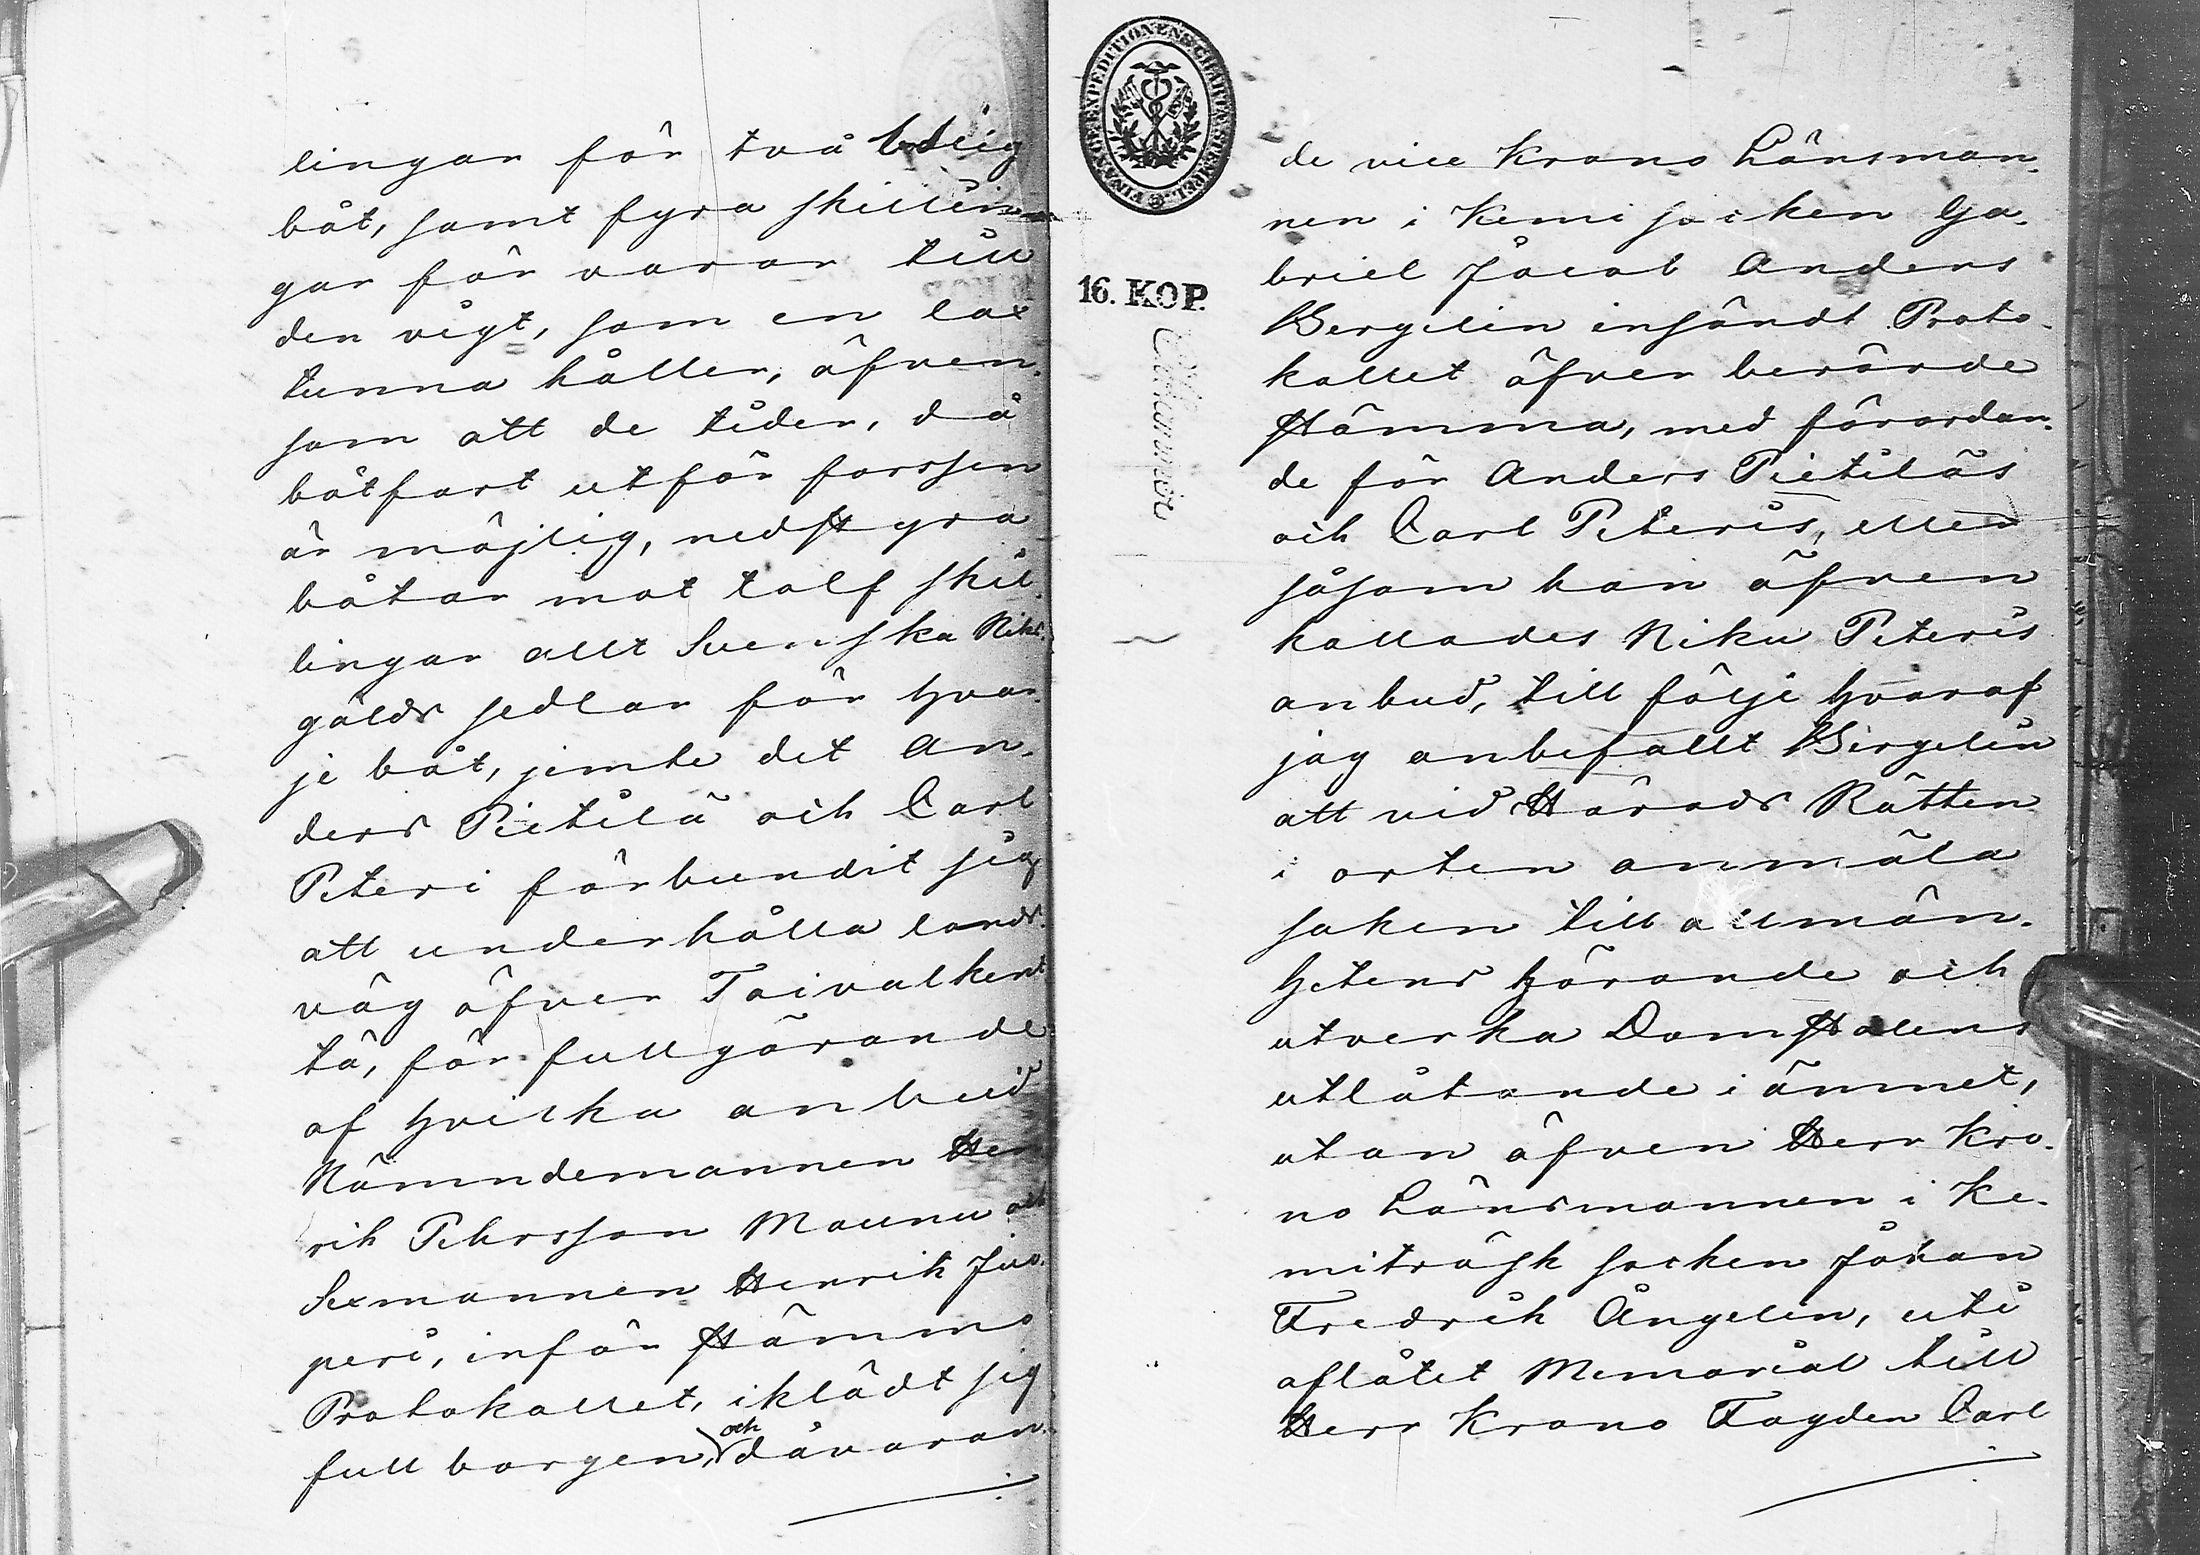 lingar för två bdlig
båt, samt fyra skillin-
gar för varor till
den vigt, som en lax
tunna håller, äfven-
som att de tider, då
båtfart utför forssen
är möjlig, nedstyra
båtar mot tolf skil-
lingar allt Svenska Riks
gälds sedlar för hvar-
je båt, jemte det An-
ders Pietilä och Carl
Peteri förbundit sig
att underhålla lands-
väg öfver Taivalkent
tä, för fullgörande
af hvilka anbud
Nämndemannen Hen
rik Pehrsson Maunu och
Sexmannen Henrik Juo-
peri, inför Stämmo
Protokollet, iklädt sig
full borgen, och dåvaran-
FINANCE EXPEDITIONENS CHARTÆ STEMPEL
16. KOP.
de vice Krono Länsman-
nen i Kemi socken Ga-
briel Jacob Anders
Bergelin insändt Proto-
kollet öfver berörde
Stämma, med förordan-
de för Anders Pietiläs
och Carl Peteris, eller
såsom han äfven
kallades Niku Peteris
anbud, till följe hvaraf
jag anbefallt Bergelin
att vid Härads Rätten
i orten anmäla
saken till allmän-
hetens hörande och
utverka Domstolens
utlåtande i ämnet,
utan äfven Herr Kro-
no Länsmannen i Ke-
miträsk socken Johan
Fredrik Ångelin, uti
aflåtet Memorial till
Herr Krono Fogden Carl